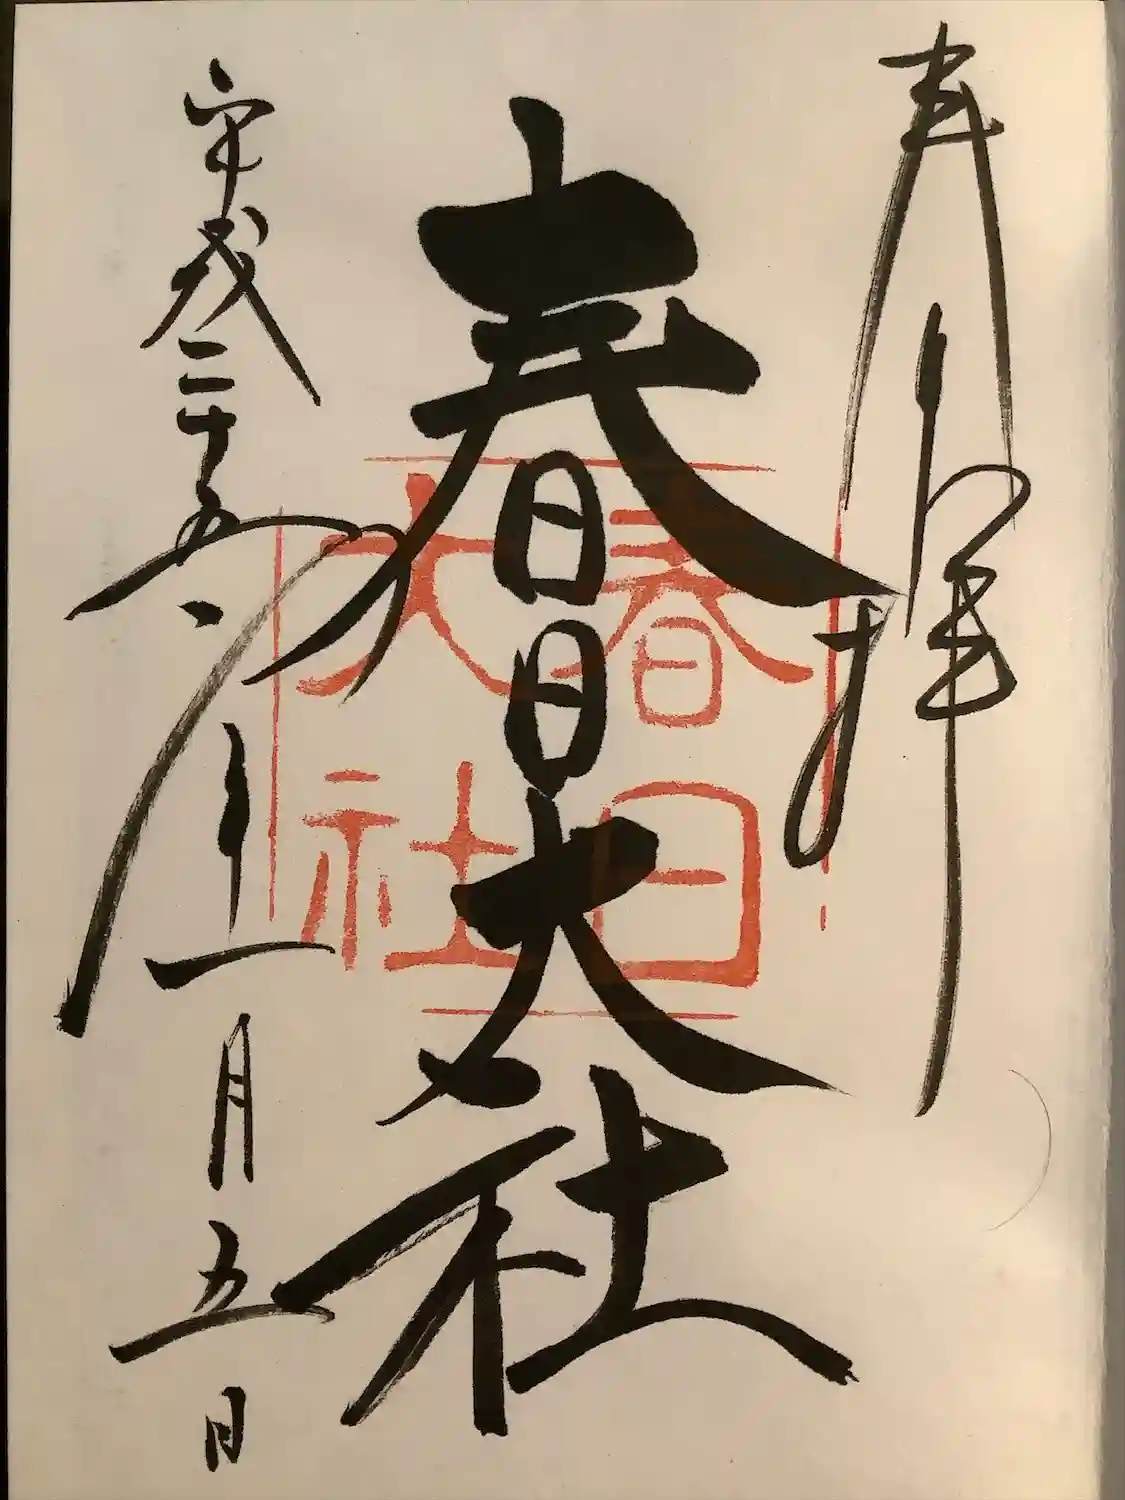 奉拝
春日大社
春日大社
平成二十五年一月五日